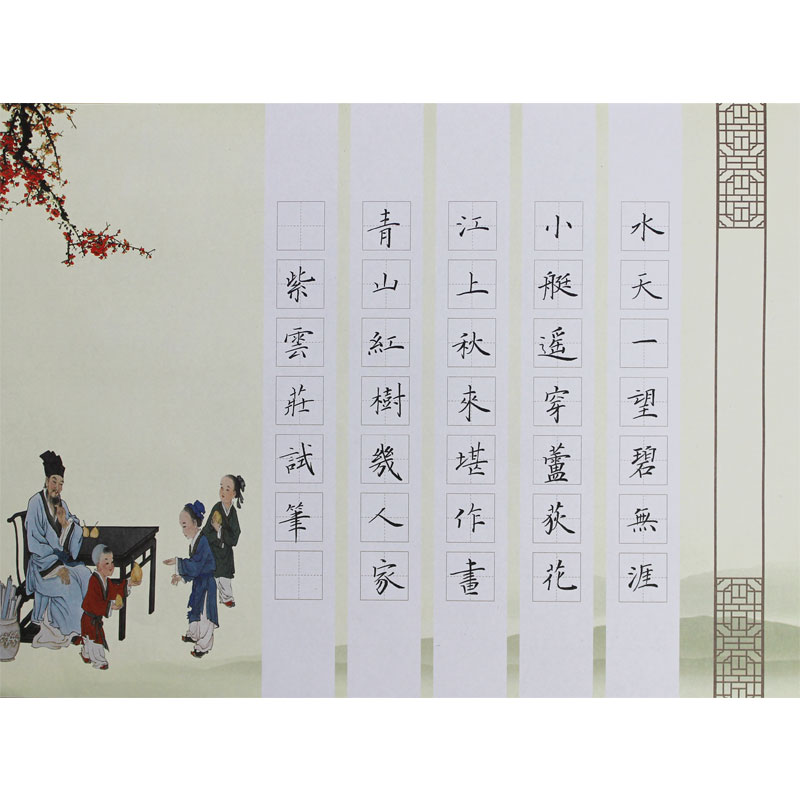 水天一望碧無涯
小艇遥穿蘆荻花
江上秋來堪作畫
青山紅樹幾人家
紫雲莊試筆